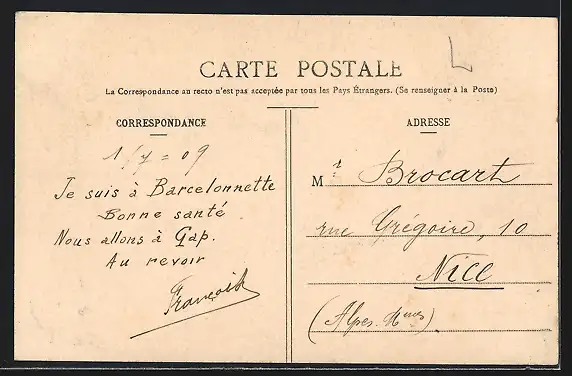 CARTE POSTALE
La Correspondance au recto n'est pas acceptée par tous les Pays Étrangers. (Se renseigner à la Poste)
CORRESPONDANCE
1/7=09
Je suis à Barcelonnette
Bonne santé
Nous allons à Gap.
Au revoir
ADRESSE
Mr Brocart
rue Grégoire, 10
Nice
(Alpes. Mmes)